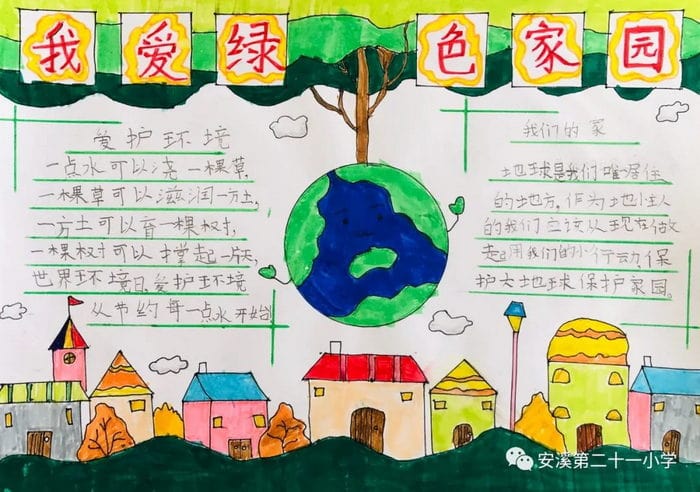 我爱绿色家园
爱护环境
一点水可以浇一棵草,
一棵草可以滋润一方土,
一方土可以育一棵树,
一棵树可以撑起一片天,
世界环境日,爱护环境
从节约每一点水开始!
我们的家
地球是我们唯一居住
的地方。作为地球小主人
的我们应该从现在做
起,用我们的小行动,保
护大地球保护家园。
安溪第二十一小学